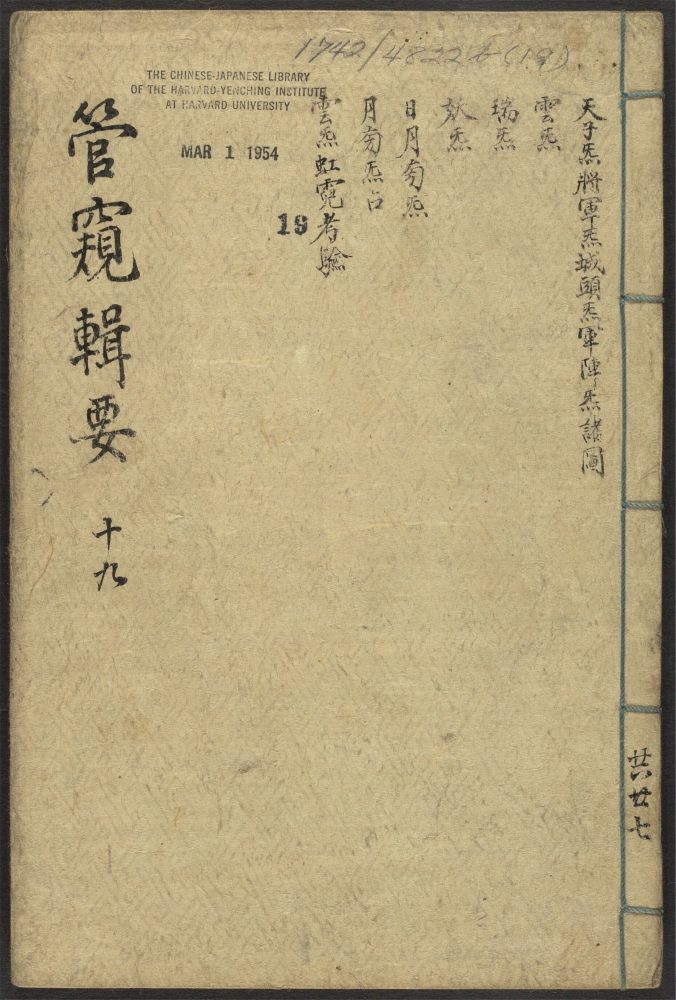 1742/4822b (19)
THE CHINESE-JAPANESE LIBRARY
OF THE HARVARD-YENCHING INSTITUTE
AT HARVARD UNIVERSITY
MAR 1 1954
19
天子炁將軍炁城頭炁軍陣炁諸圖
雲炁
瑞炁
妖炁
日月旁炁
月旁炁占
雲炁虹霓考驗
管窺輯要
十九
共廿七